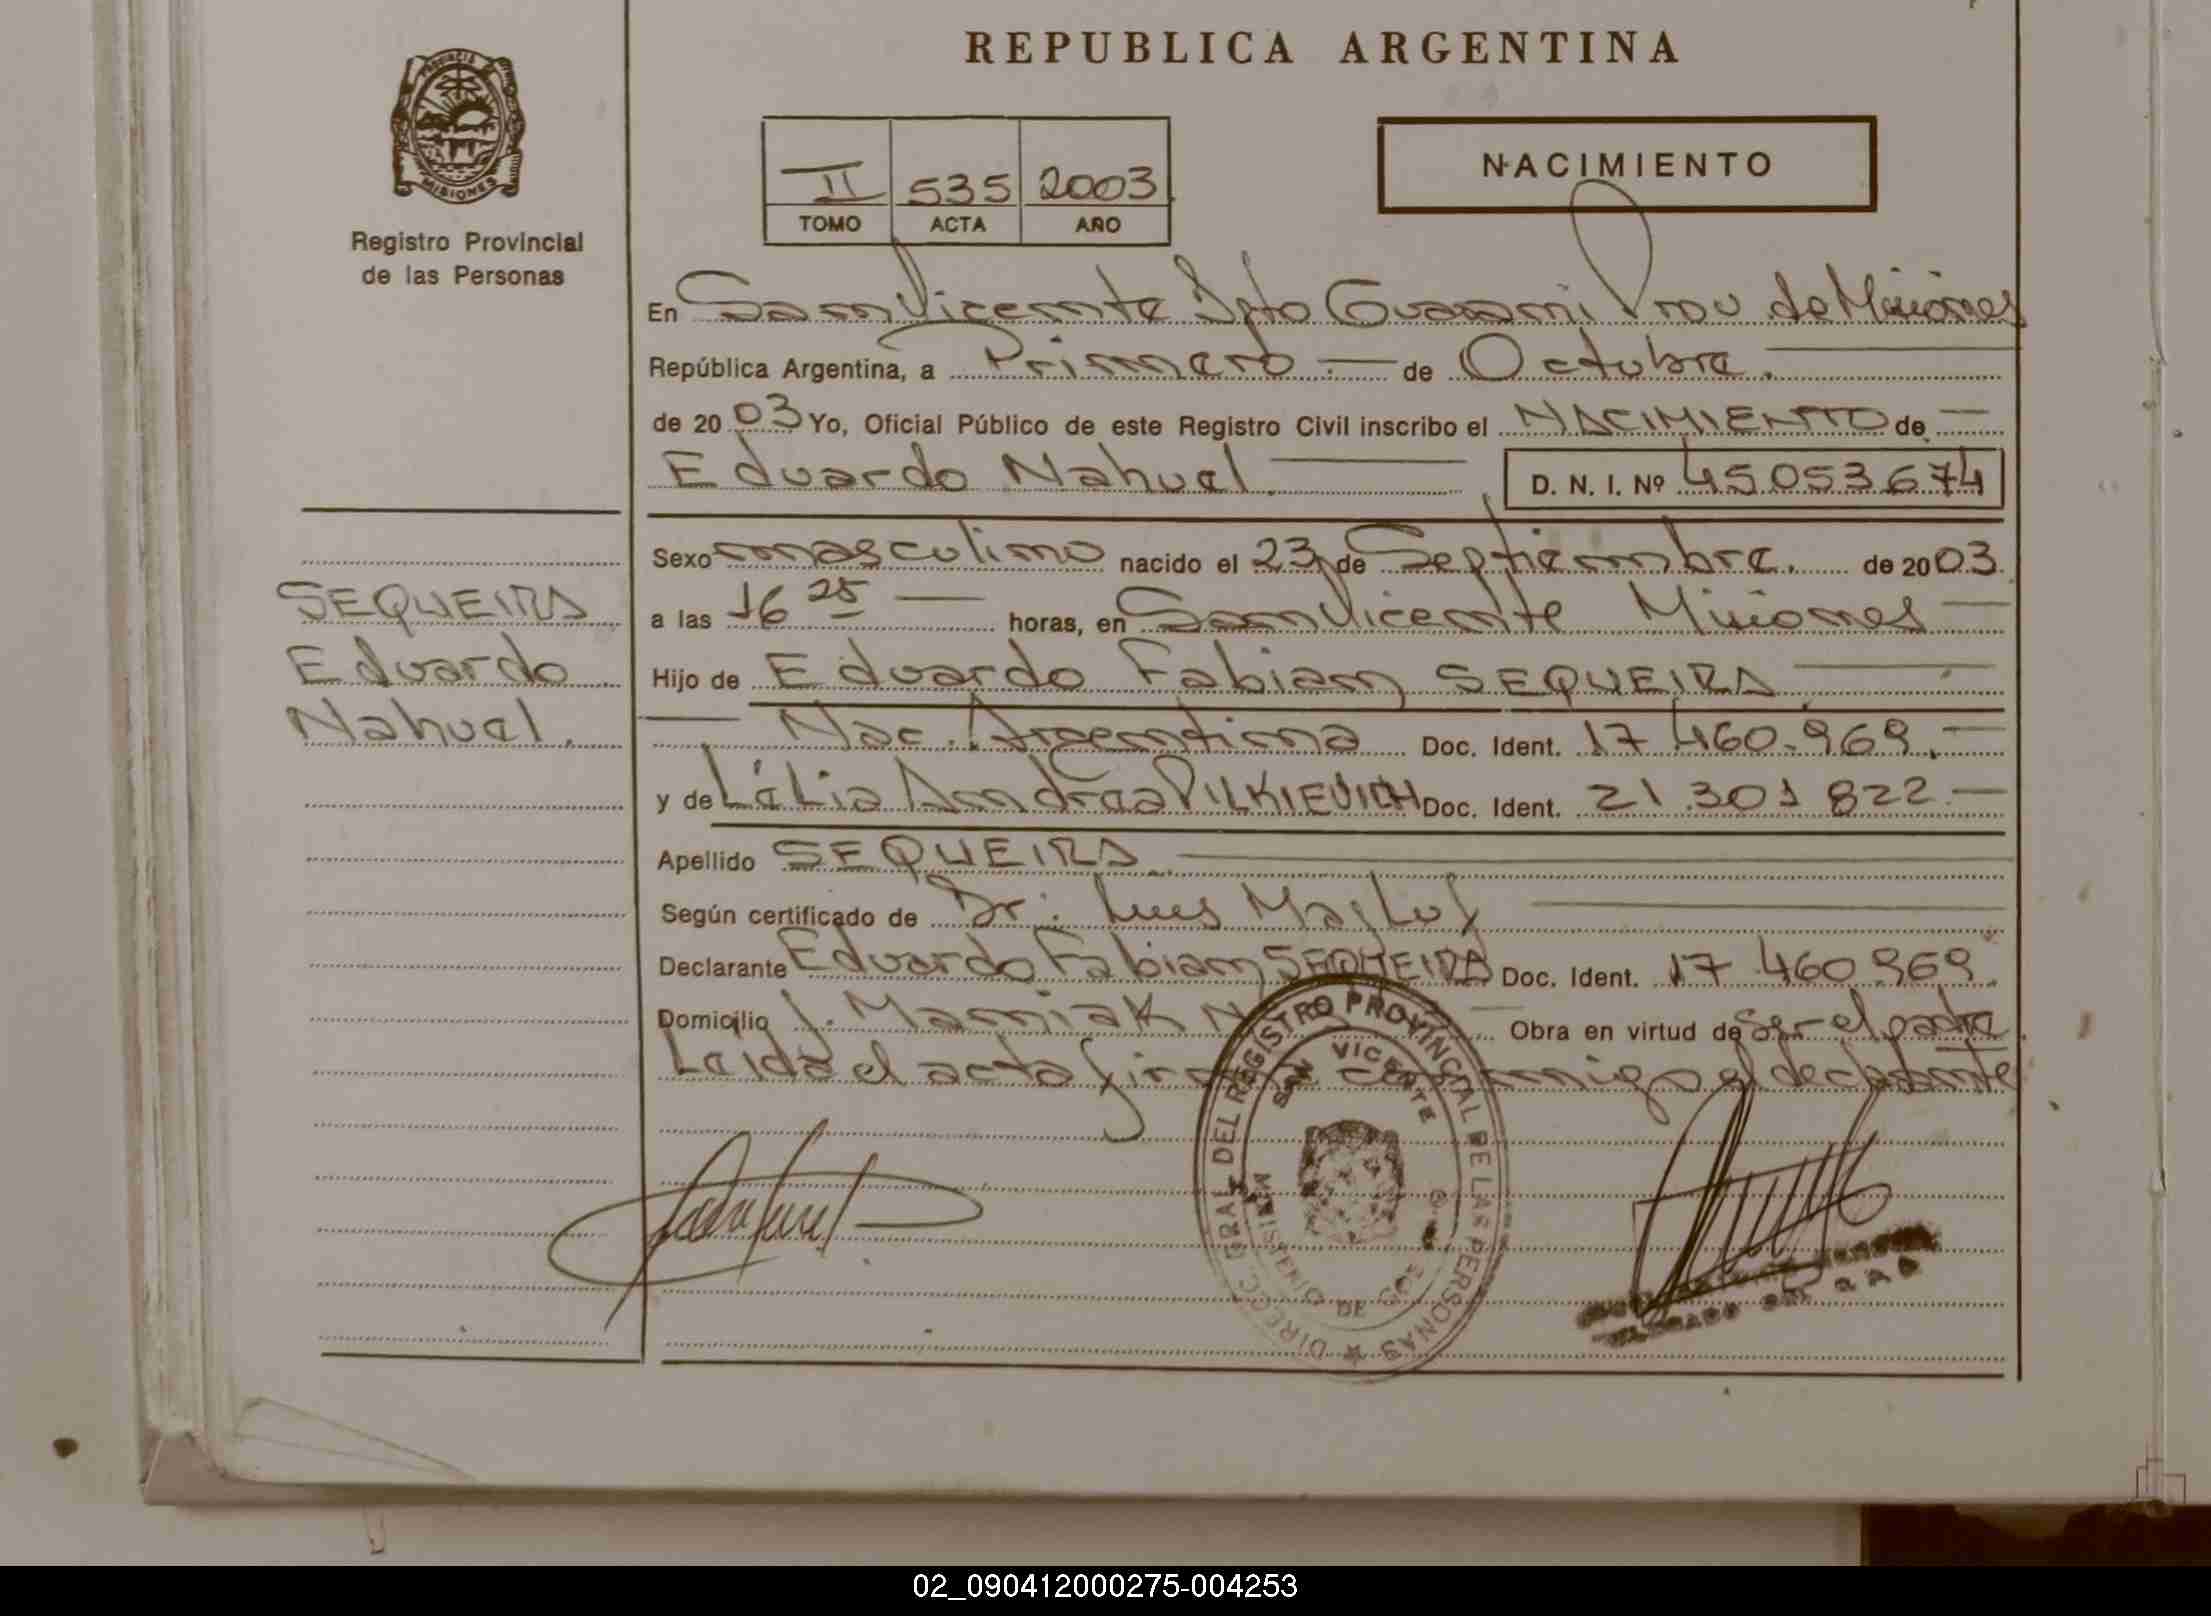 REPUBLICA ARGENTINA
PROVINCIA DE
MISIONES
Registro Provincial
de las Personas
II 535 2003
TOMO ACTA AÑO
NACIMIENTO
En San Vicente Dpto Guarani Prov de Misiones
República Argentina, a Primero de Octubre.
de 2003 Yo, Oficial Público de este Registro Civil inscribo el NACIMIENTO de
Eduardo Nahuel D. N. I. Nº 45053674
Sexo masculino nacido el 23 de Septiembre. de 2003
a las 16 25 horas, en San Vicente Misiones
Hijo de Eduardo Fabian SEQUEIRA
Nac. Argentina Doc. Ident. 17 460.969.
y de Lelia Andrea PILKIEVICH Doc. Ident. 21.301 822
Apellido SEQUEIRA
Según certificado de Dr. Luis
Declarante Eduardo Fabian SEQUEIRA Doc. Ident. 17.460.969
Domicilio Obra en virtud de ser el padre
Leida el acta conmigo el declarante
SEQUEIRA
Eduardo
Nahuel.
DIRECC. GRAL. DEL REGISTRO PROVINCIAL DE LAS PERSONAS
SAN VICENTE
MINISTERIO DE GOB
02_090412000275-004253